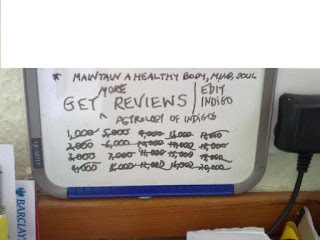 * MAINTAIN A HEALTHY BODY, MIND, SOUL
MORE
GET REVIEWS | EDIT INDIGO
^ ASTROLOGY OF INDIGOS
1,000 5,000 9,000 13,000 17,000
2,000 6,000 10,000 14,000 18,000
3,000 7,000 11,000 15,000 19,000
4,000 8,000 12,000 16,000 20,000
QUARTET
BARCLAY